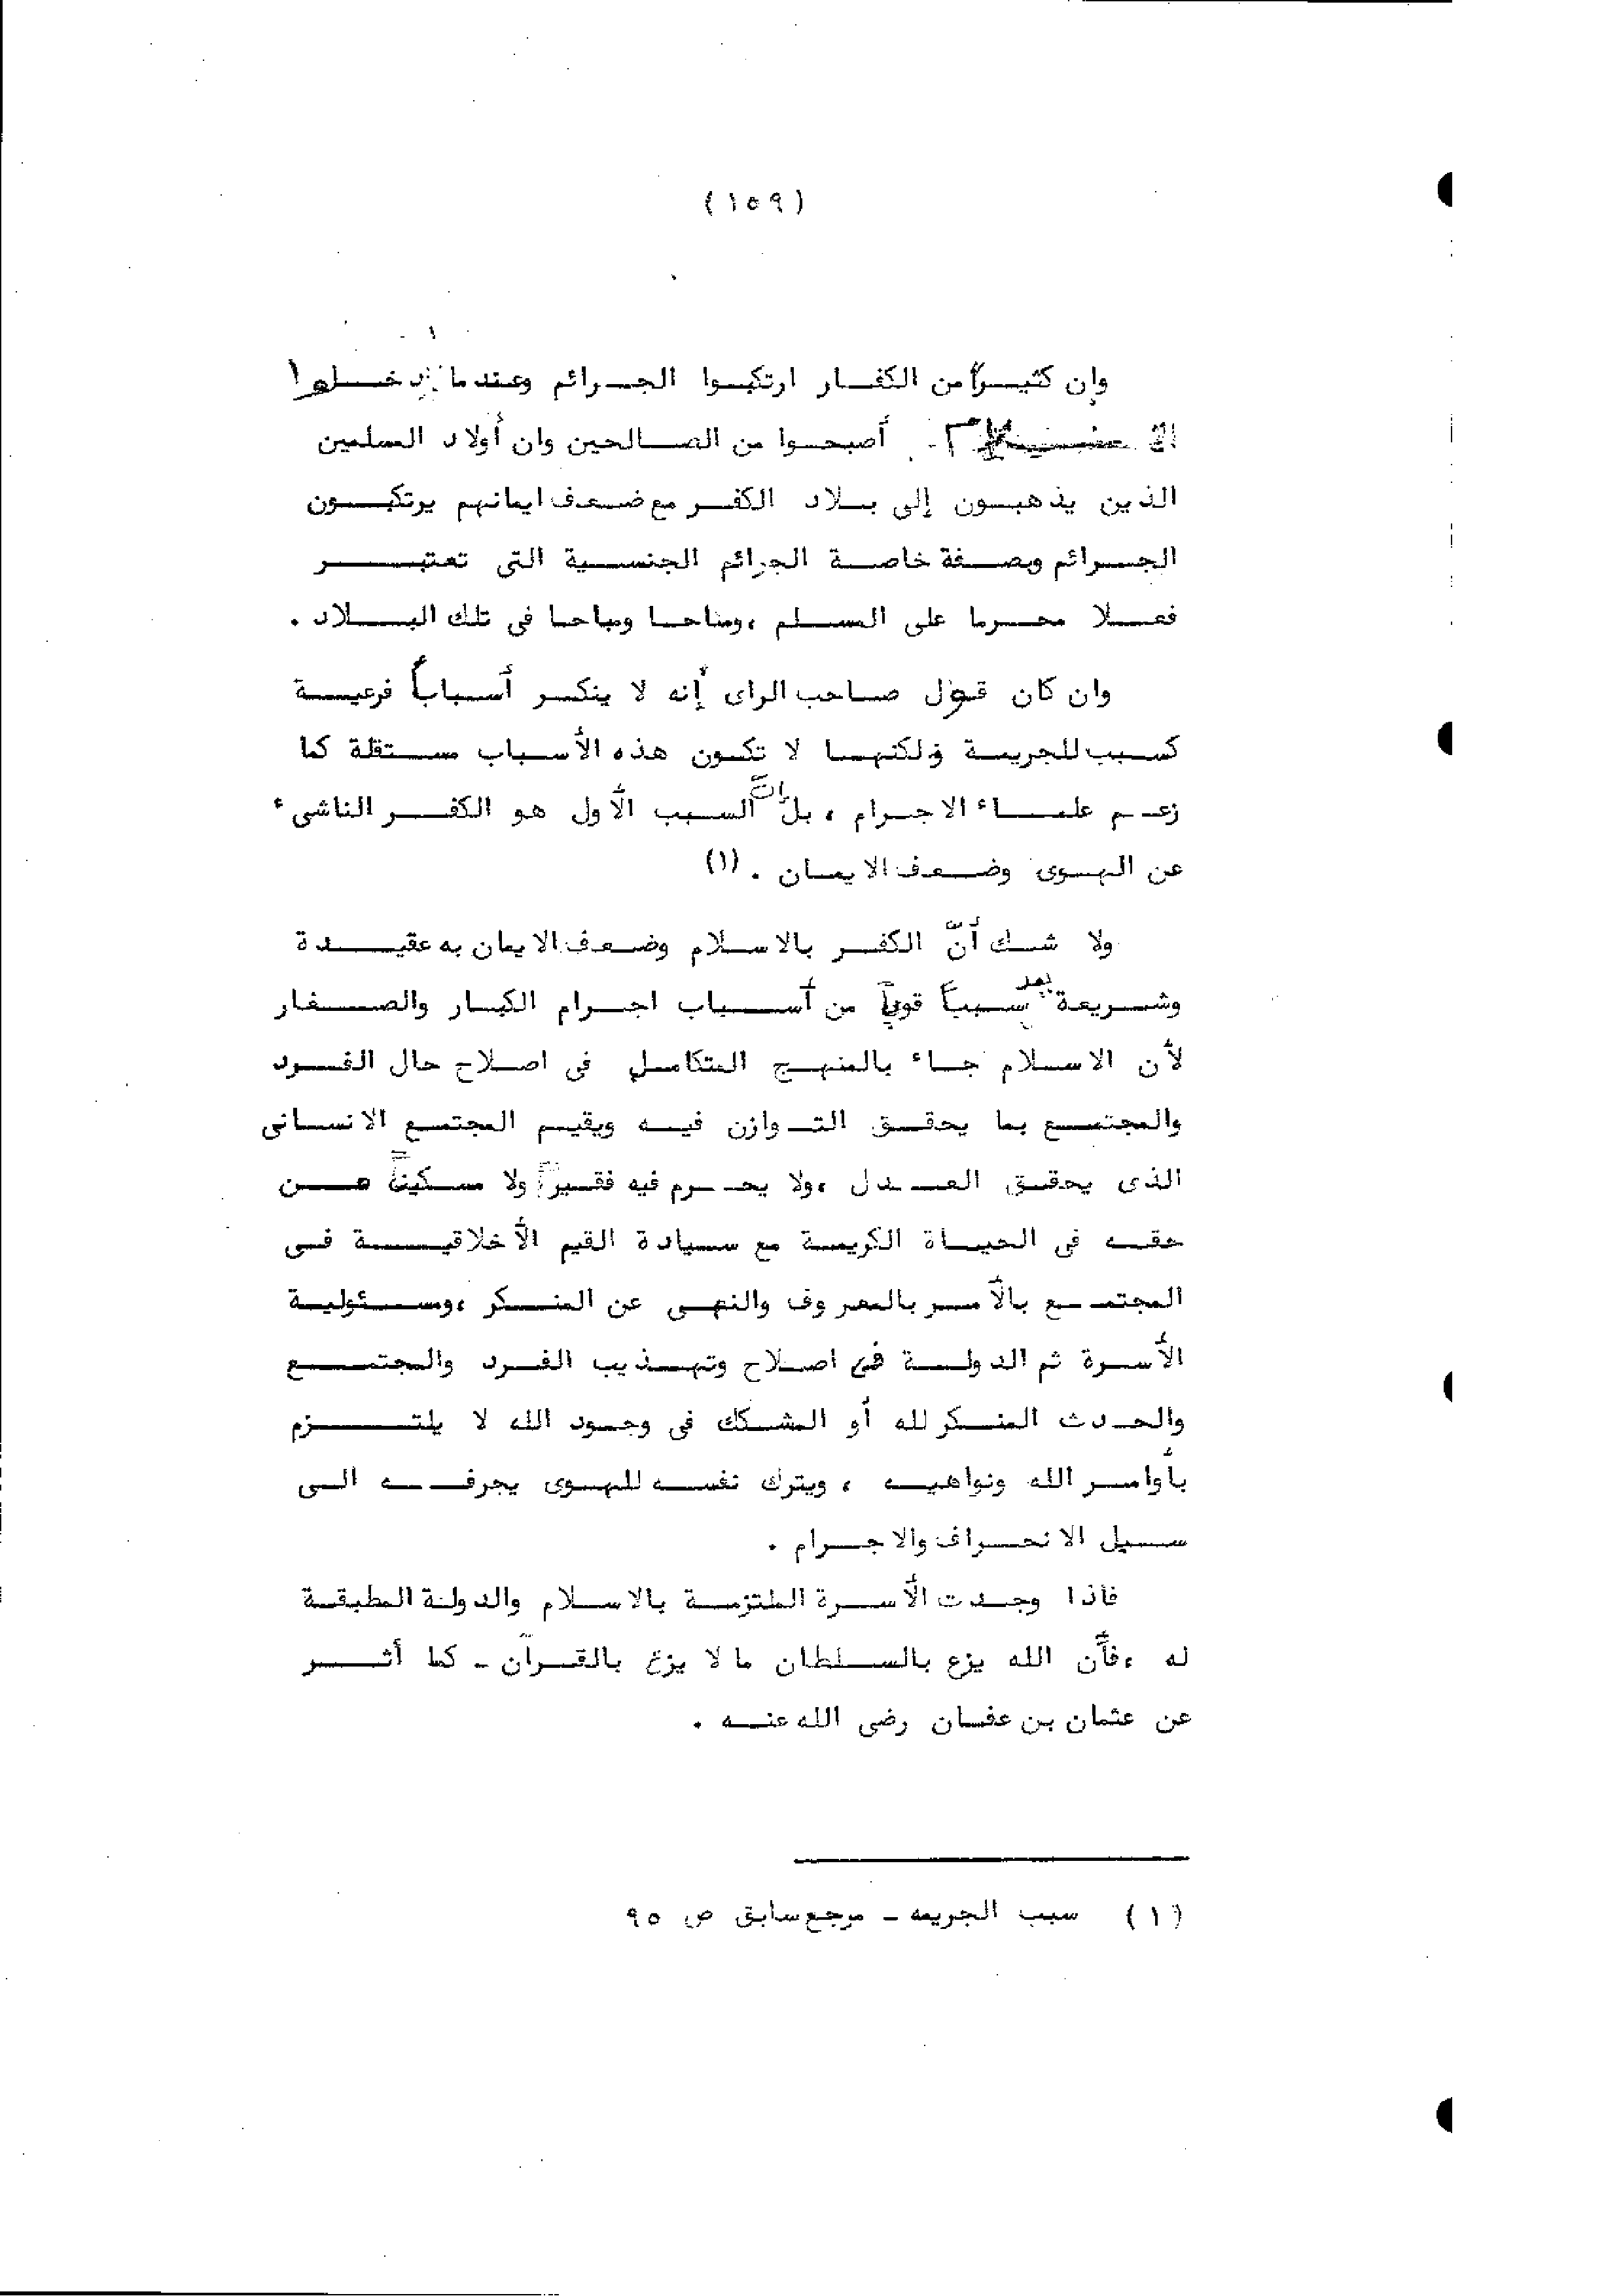 (١٥٩)
وإن كثيراً من الكفار ارتكبوا الجرائم وعندما دخلوا
أصبحوا من الصالحين وان أولاد المسلمين
الذين يذهبون إلى بلاد الكفر مع ضعف ايمانهم يرتكبون
الجرائم وبصفة خاصة الجرائم الجنسية التى تعتبر
فعلا محرما على المسلم ، ومباحا فى تلك البلاد .
وان كان قول صاحب الراى إنه لا ينكر أسباباً فرعية
كسبب للجريمة ولكنها لا تكون هذه الأسباب مستقلة كما
زعم علماء الاجرام ، بل إنَّ السبب الأول هو الكفر الناشىء
عن الهوى وضعف الايمان . (١)
ولا شك أنَّ الكفر بالاسلام وضعف الايمان به عقيدة
وشريعة يعد سبباً قوياً من أسباب اجرام الكبار والصغار
لأن الاسلام جاء بالمنهج المتكامل فى اصلاح حال الفرد
والمجتمع بما يحقق التوازن فيه ويقيم المجتمع الانسانى
الذى يحقق العدل ، ولا يحرم فيه فقيراً ولا مسكيناً من
حقه فى الحياة الكريمة مع سيادة القيم الأخلاقية فى
المجتمع بالأمر بالمعروف والنهى عن المنكر ، ومسئولية
الأسرة ثم الدولة فى اصلاح وتهذيب الفرد والمجتمع
والحدث المنكر لله أو المشكك فى وجود الله لا يلتزم
بأوامر الله ونواهيه ، ويترك نفسه للهوى يجرفه الى
سبيل الانحراف والاجرام .
فاذا وجدت الأسرة الملتزمة بالاسلام والدولة المطبقة
له ، فأن الله يزع بالسلطان ما لا يزع بالقرآن - كما أثر
عن عثمان بن عفان رضى الله عنه .
(١) سبب الجريمه - مرجع سابق ص ٩٥